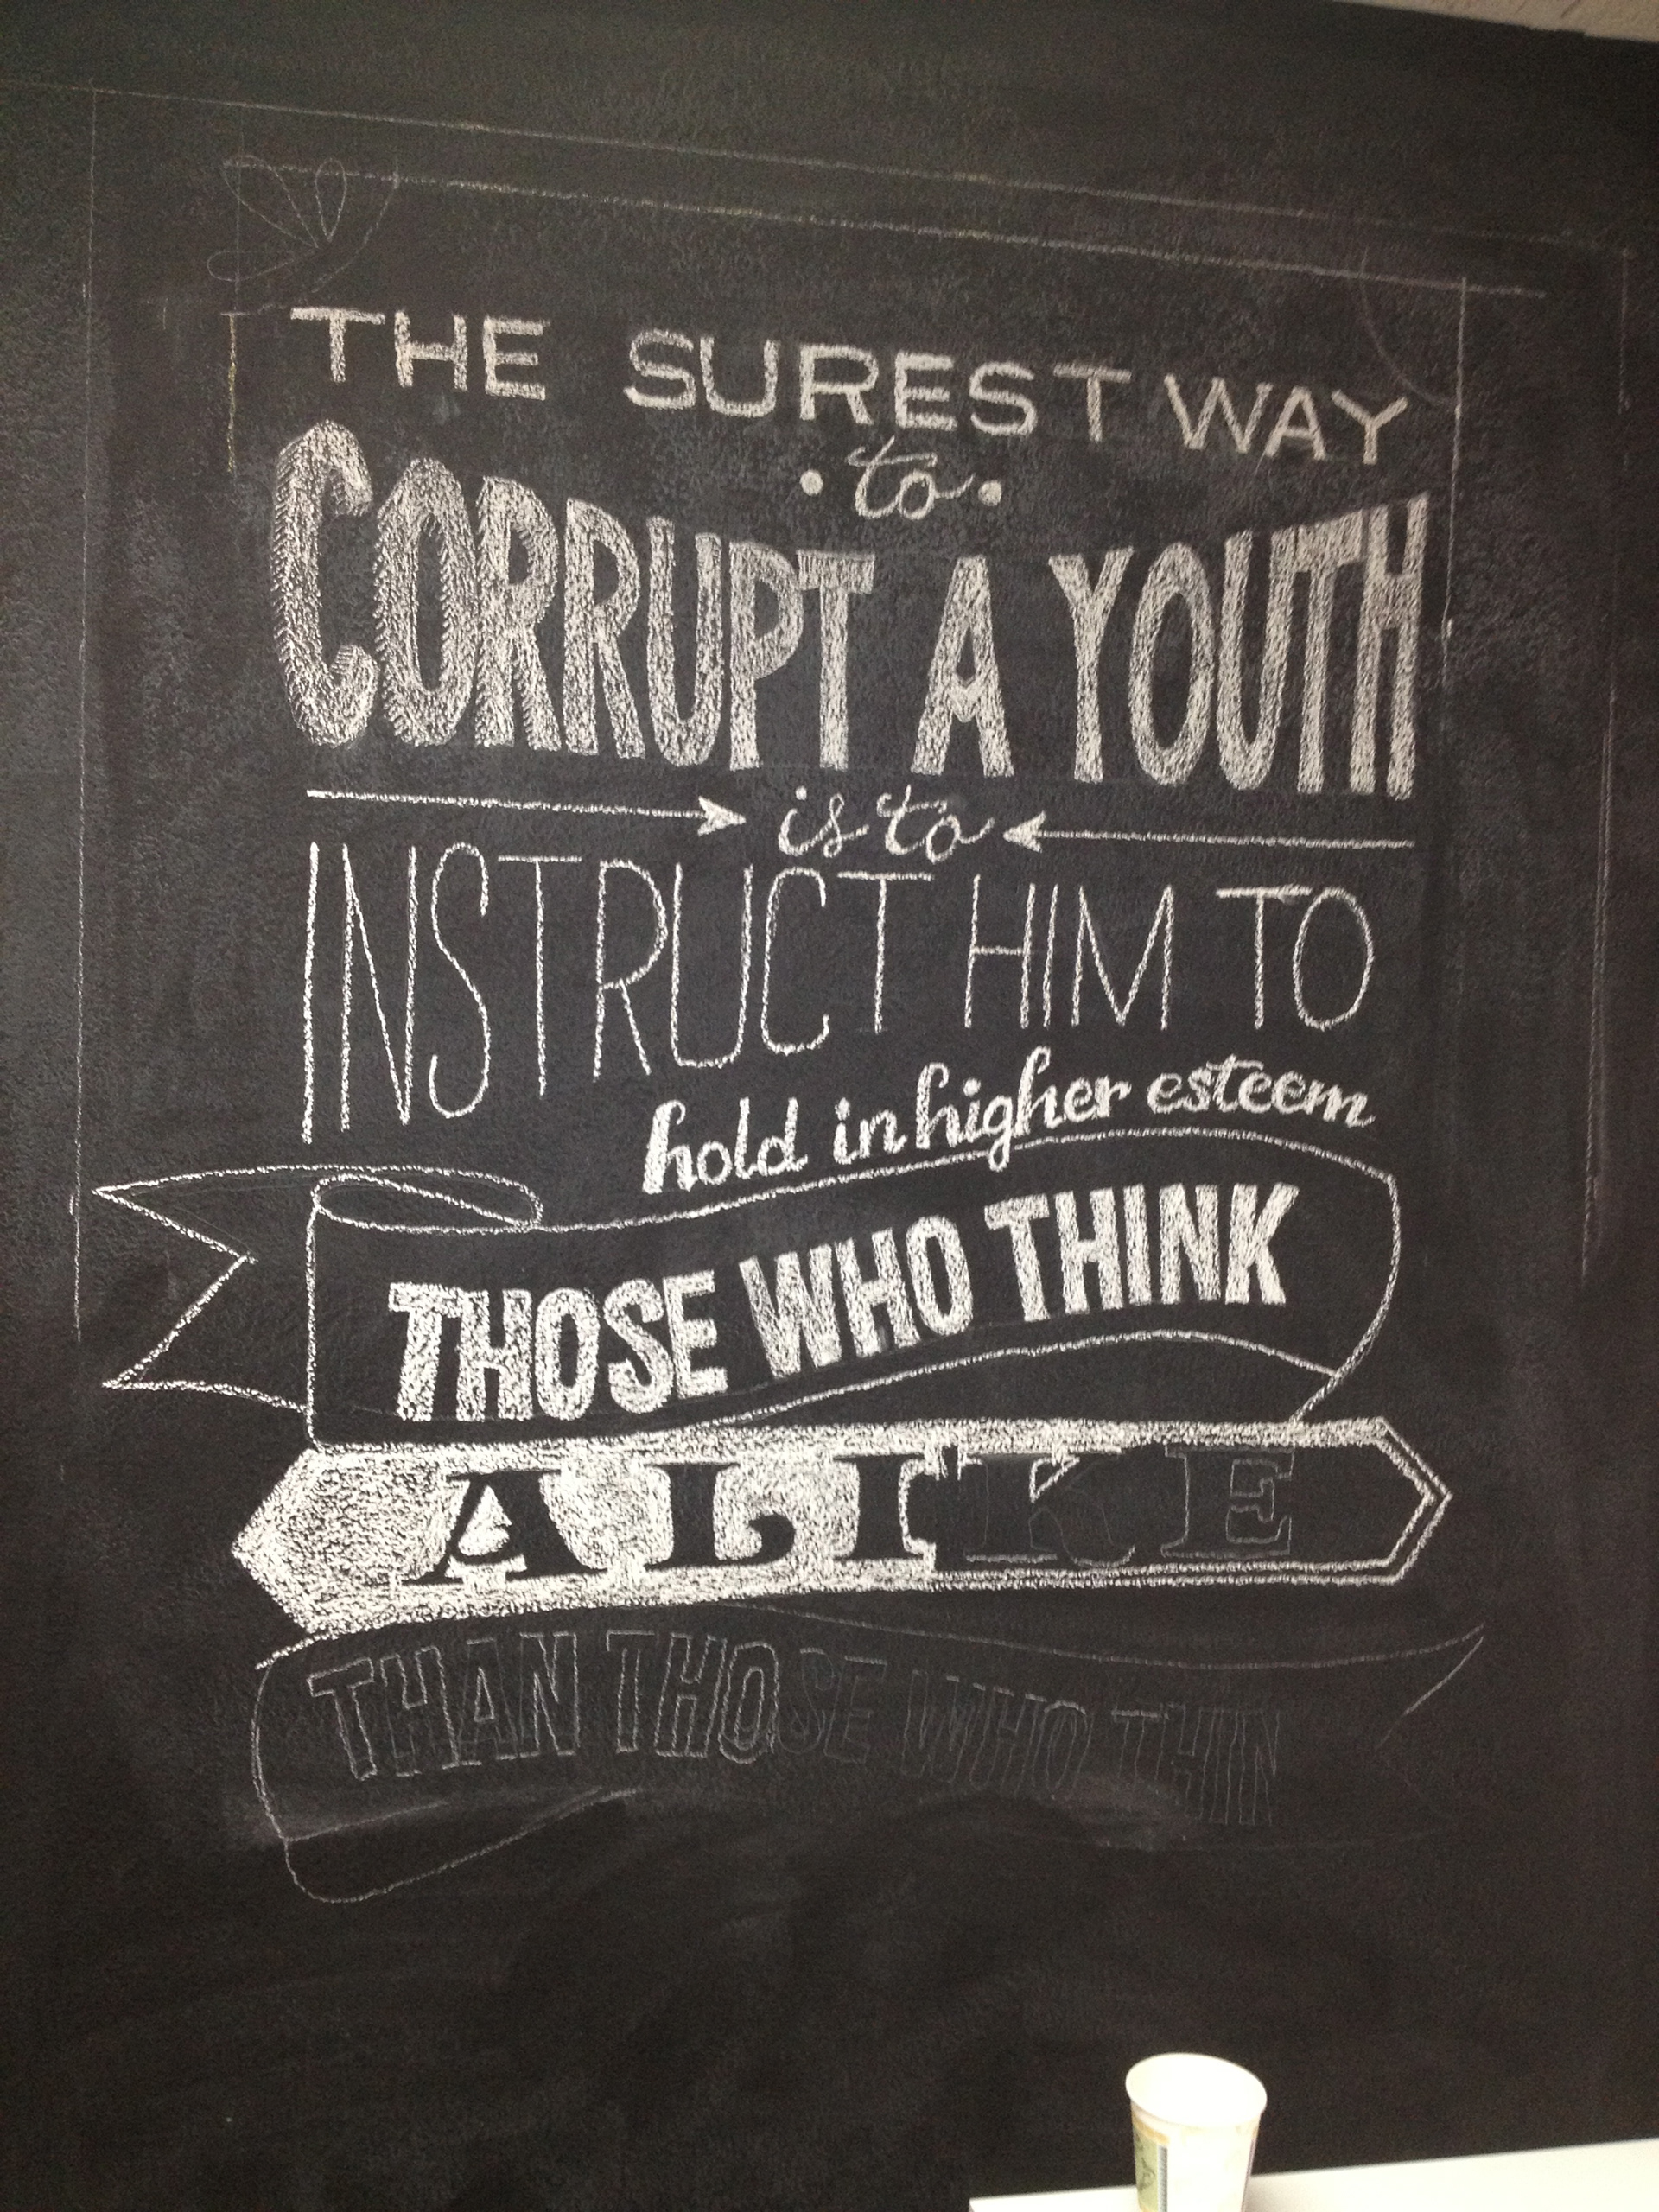 THE SUREST WAY
• to •
CORRUPT A YOUTH
is to
INSTRUCT HIM TO
hold in higher esteem
THOSE WHO THINK
ALIKE
THAN THOSE WHO THIN